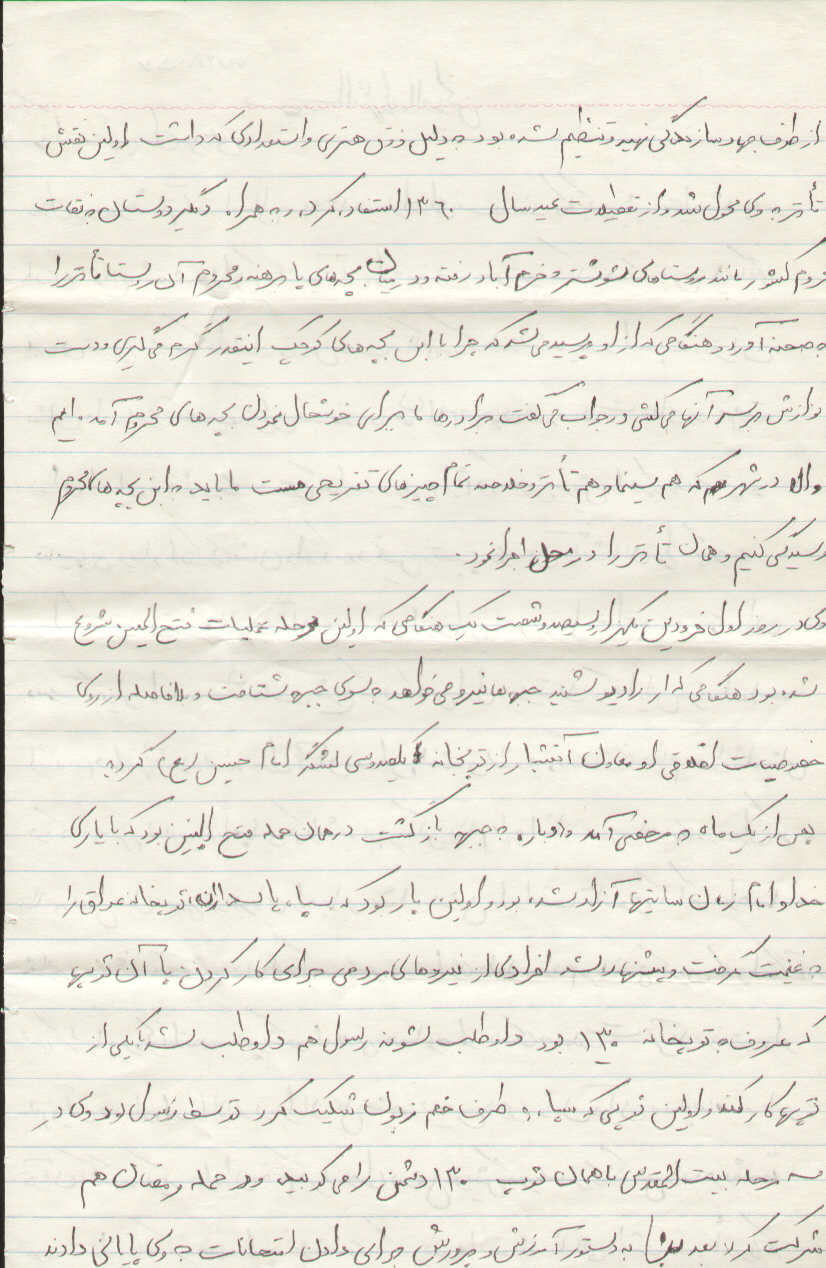 از طرف جهاد سازندگی تهیه و تنظیم شده بود به دلیل ذوق هنری و استعدادی که داشت اولین نقش
تأتر به وی محول شد و از تعطیلات عید سال ۱۳۶۰ استفاده کرده و به همراه دیگر دوستان به نقات
محروم کشور مانند روستاهای شوشتر و خرم آباد رفته و در میان بچه‌های پا برهنه و محروم آن روستا تأتر را
به صحنه آورد و هنگامی که از او پرسیده می‌شد که چرا با این بچه‌های کوچک اینقدر گرم می‌گیری و دست
نوازش بر سر آنها می‌کشی در جواب می‌گفت برادرها ما برای خوشحال نمودن بچه‌های محروم آمده‌ایم
والا در شهر که هم سینما و هم تأتر و خلاصه تمام چیزهای تفریحی هست ما باید به این بچه‌ها محروم
رسیدگی کنیم و همان تأتر را در محل اجرا نمود.
وی در روز اول فرودین یکهزار و سیصد و شصت یک هنگامی که اولین مرحله عملیات فتح المبین شروع
شده بود هنگامی که از رادیو شنید جبهه‌ها نیرو می‌خواهد به سوی جبهه شتافت و بلافاصله از روی
خصوصیات اخلاقی او معاون آتشبار از توپخانه یکصدوسی لشگر امام حسین (ع) کرده
پس از یک ماه به مرخصی آمد دوباره به جبهه بازگشت در همان حمله فتح المبین بود که با یاری
خدا و امام زمان سایتها آزاد شده بود و اولین بار بود که سپاه پاسداران توپخانه عراق را
به غنیمت گرفت و پیشنهاد شد افرادی از نیروهای مردمی برای کار کردن با آن توپها
که معروف به توپخانه ۱۳۰ بود داوطلب شوند رسول هم داوطلب شد با یکی از
توپها کار کند و اولین توپی که سپاه به طرف خصم زبون شلیک کرد توسط رسول بود وی در
سه مرحله بیت المقدس با همان توپ ۱۳۰ دشمن را می‌کوبید و در حمله رمضان هم
شرکت کرد بعد به دستور آموزش و پرورش برای دادن امتحانات به وی پایانی دادند